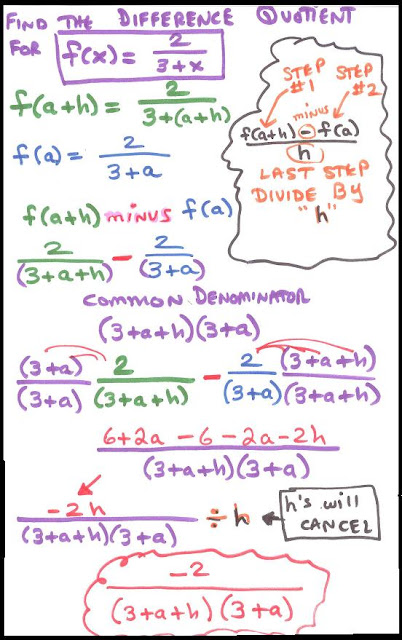 FIND THE DIFFERENCE QUOTIENT
FOR f(x) = 2/(3+x)
f(a+h) = 2/(3+(a+h))
f(a) = 2/(3+a)
STEP #1 STEP #2
minus
(f(a+h) - f(a))/h
LAST STEP
DIVIDE BY
"h"
f(a+h) minus f(a)
2/(3+a+h) - 2/(3+a)
COMMON DENOMINATOR
(3+a+h)(3+a)
(3+a)/(3+a) 2/(3+a+h) - 2/(3+a) (3+a+h)/(3+a+h)
(6+2a-6-2a-2h)/((3+a+h)(3+a))
-2h/((3+a+h)(3+a)) ÷ h
h's will
CANCEL
-2/((3+a+h)(3+a))